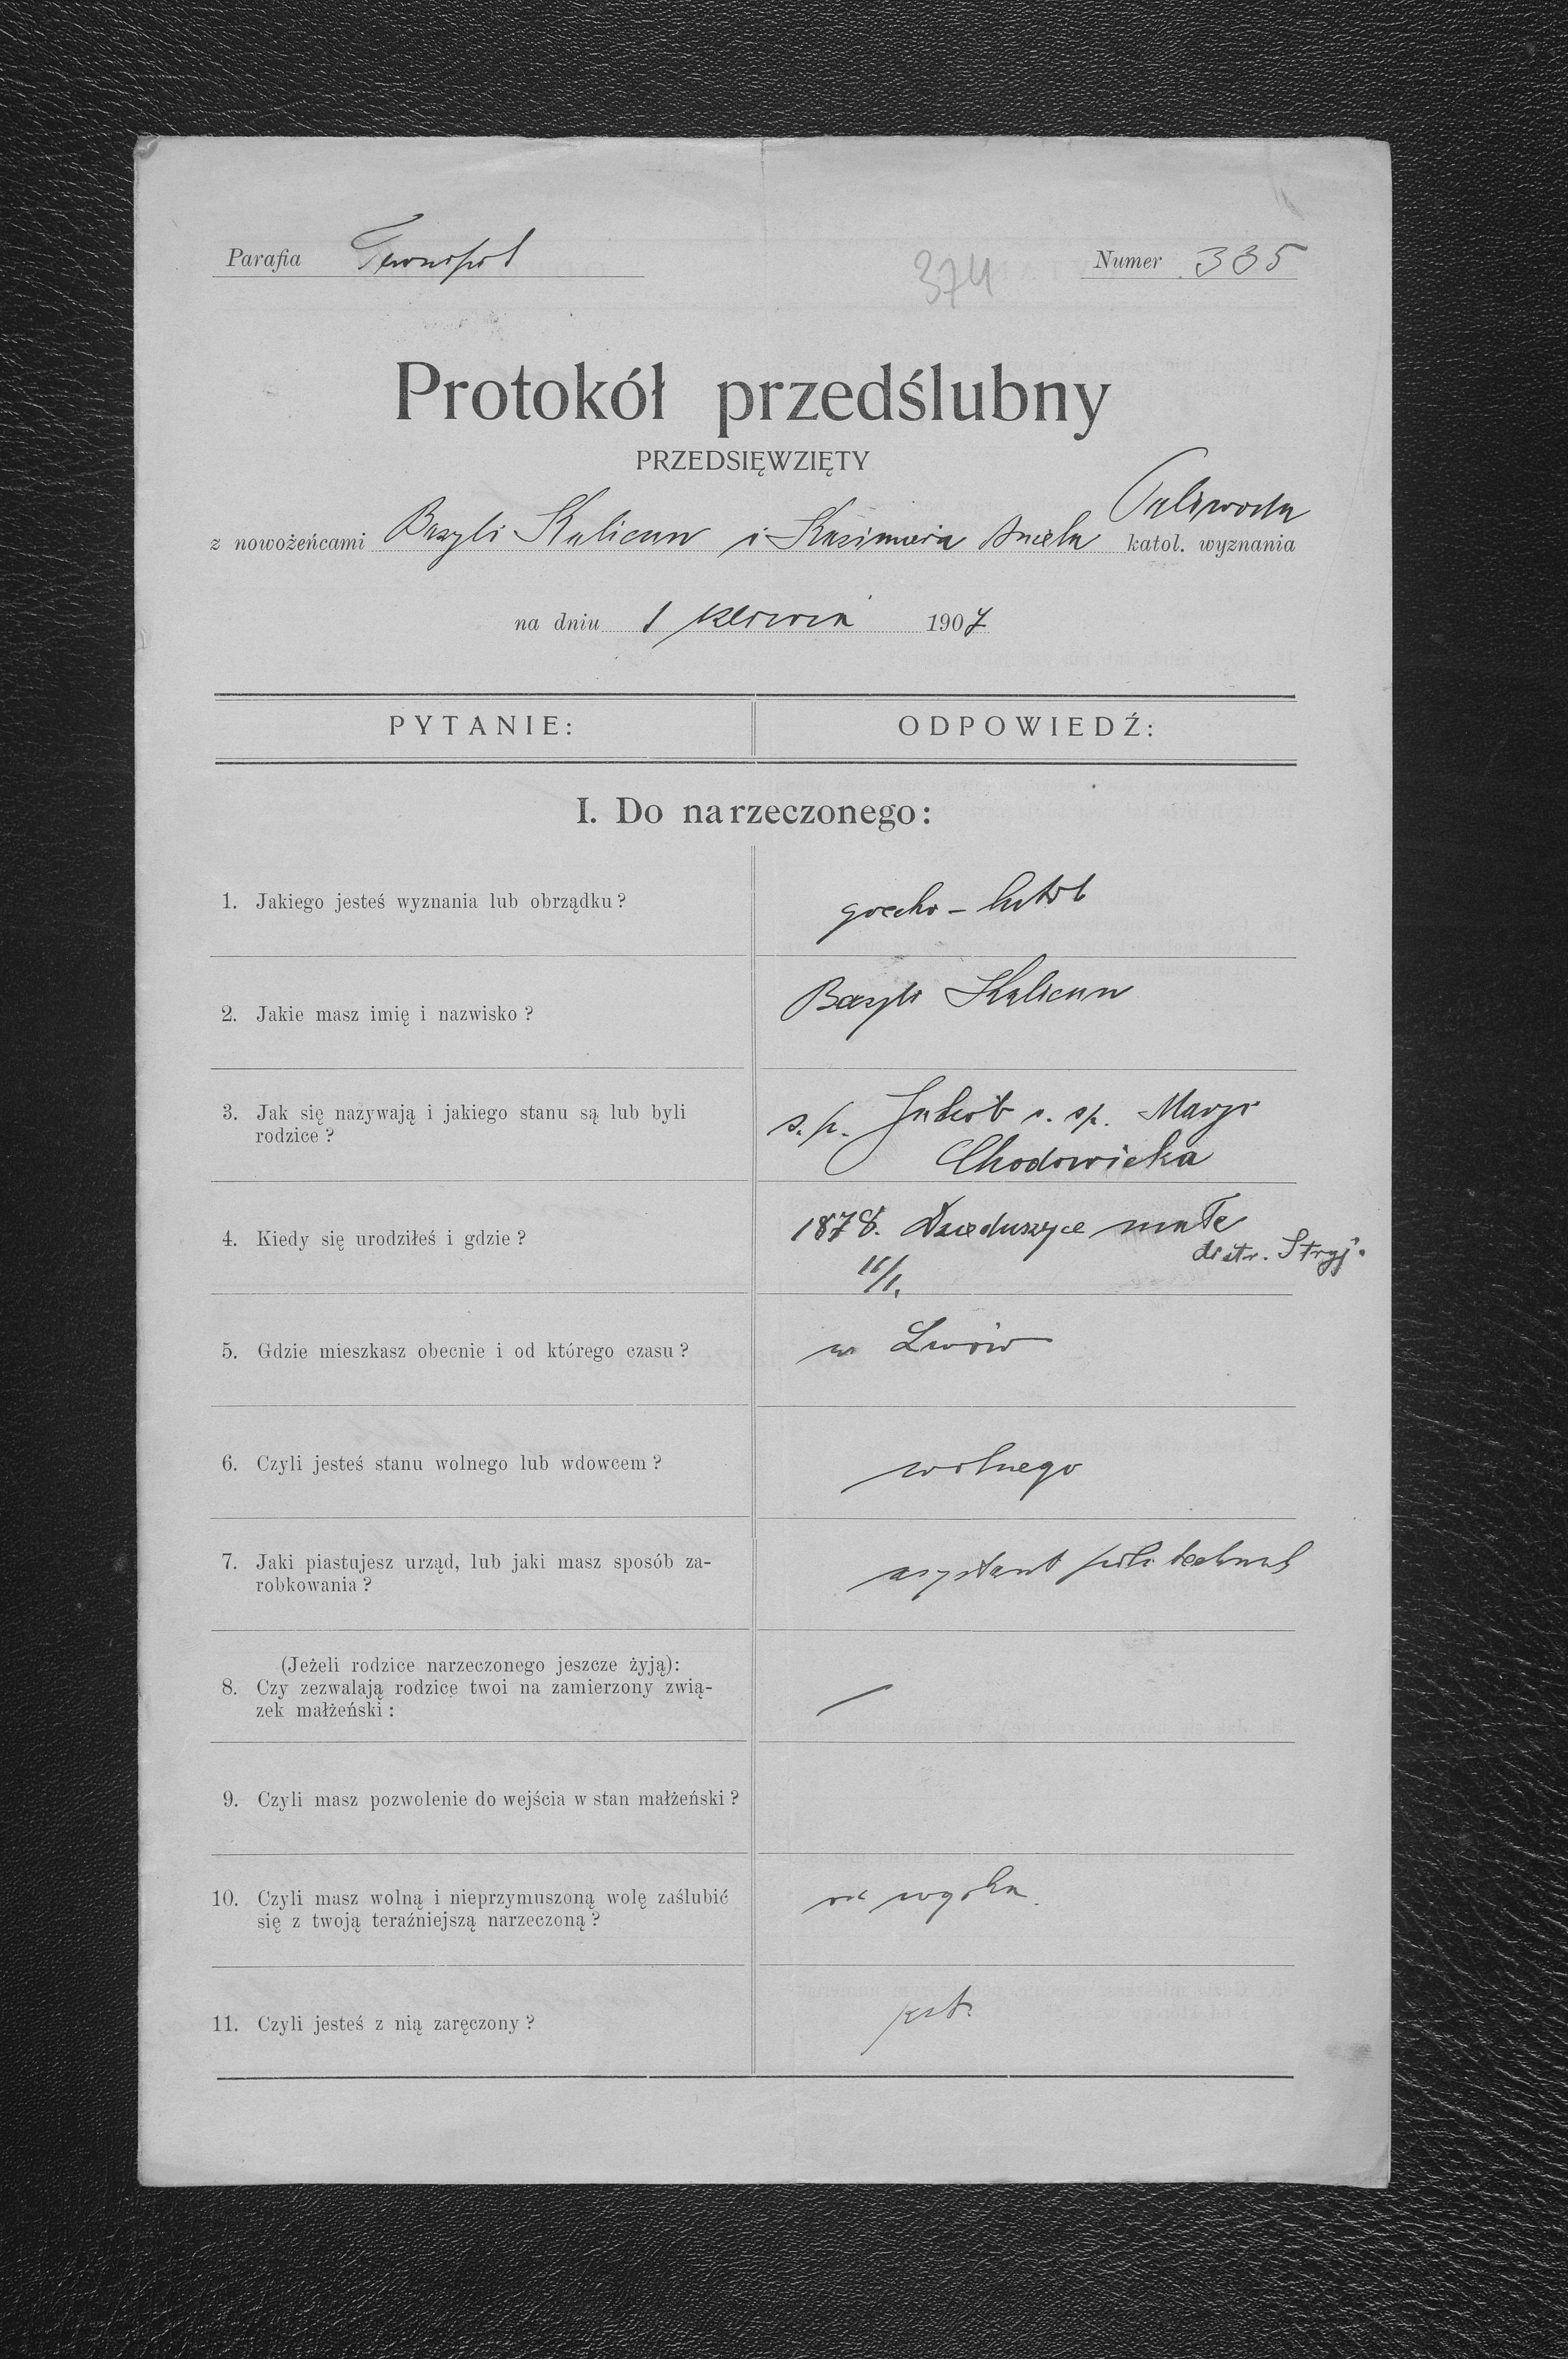 Parafia Tarnopol
374
Numer 335
Protokół przedślubny
PRZEDSIĘWZIĘTY
z nowożeńcami Bazyli Kalicun i Kazimiera Aniela katol. wyznania
na dniu 1 czerwca 1907
PYTANIE:
ODPOWIEDŹ:
I. Do narzeczonego:
1. Jakiego jesteś wyznania lub obrządku?
grecko - katol
2. Jakie masz imię i nazwisko?
Bazyli Kalicun
3. Jak się nazywają i jakiego stanu są lub byli
rodzice?
s. p. Jakób i. sp. Marya
Chodowicka
4. Kiedy się urodziłeś i gdzie?
1878. Dzieduszyce małe
distr. Stryj.
5. Gdzie mieszkasz obecnie i od którego czasu?
w Lwów
6. Czyli jesteś stanu wolnego lub wdowcem?
wolnego
7. Jaki piastujesz urząd, lub jaki masz sposób za-
robkowania?
asystent politechnik
(Jeżeli rodzice narzeczonego jeszcze żyją):
8. Czy zezwalają rodzice twoi na zamierzony zwią-
zek małżeński:
9. Czyli masz pozwolenie do wejścia w stan małżeński?
10. Czyli masz wolną i nieprzymuszoną wolę zaślubić
się z twoją teraźniejszą narzeczoną?
11. Czyli jesteś z nią zaręczony?
jest.